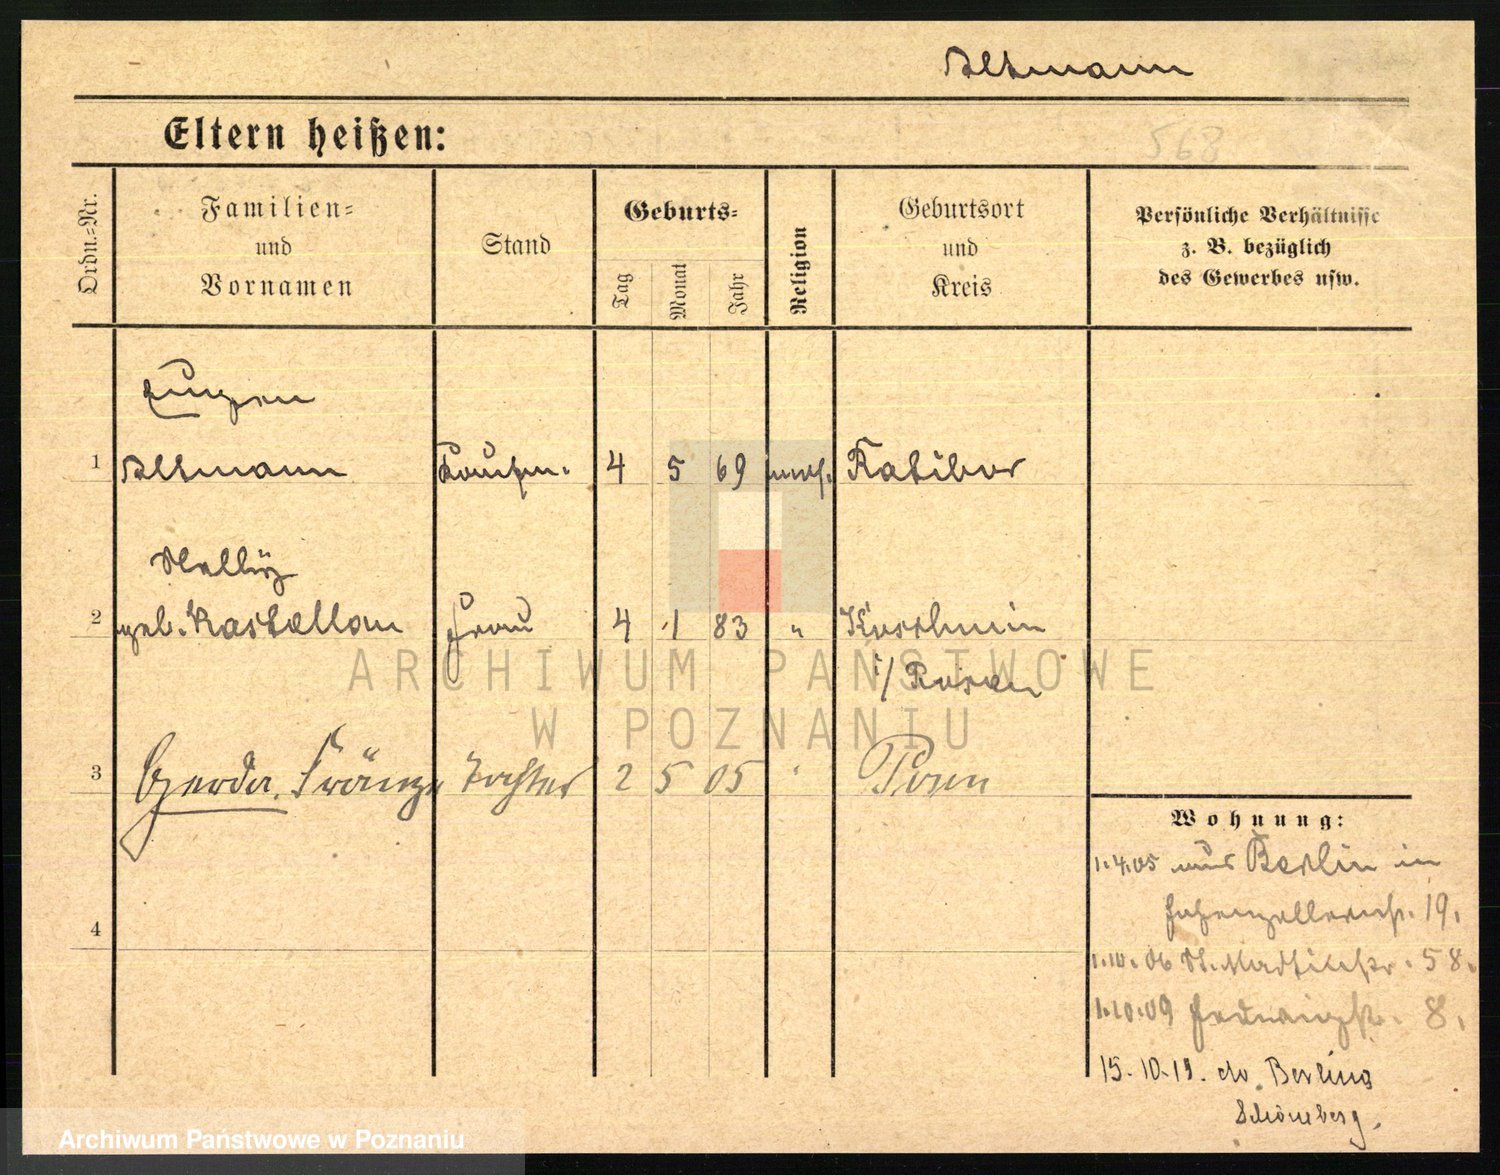 Altmann
Eltern heißen:
568
Ordn.=Nr.
Familien=
und
Vornamen
Stand
Geburts=
Tag
Monat
Jahr
Religion
Geburtsort
und
Kreis
Persönliche Verhältnisse
z. B. bezüglich
des Gewerbes usw.
Eugen
1 Altmann Kaufm. 4 5 69 mos. Ratibor
2 geb. Kastellan Frau 4 1 83 " Koschmin
i/ Posen
3 Gerda, Fränze Tochter 2 5 05 " Posen
4
Wohnung:
1.4.05 aus Berlin in
Hohenzollernstr. 19.
1.10.06 St. Martinstr. 58.
1.10.09 Hedwigstr. 8.
15.10.19. do Berlin
Schöneberg.
ARCHIWUM PAŃSTWOWE
W POZNANIU
Archiwum Państwowe w Poznaniu